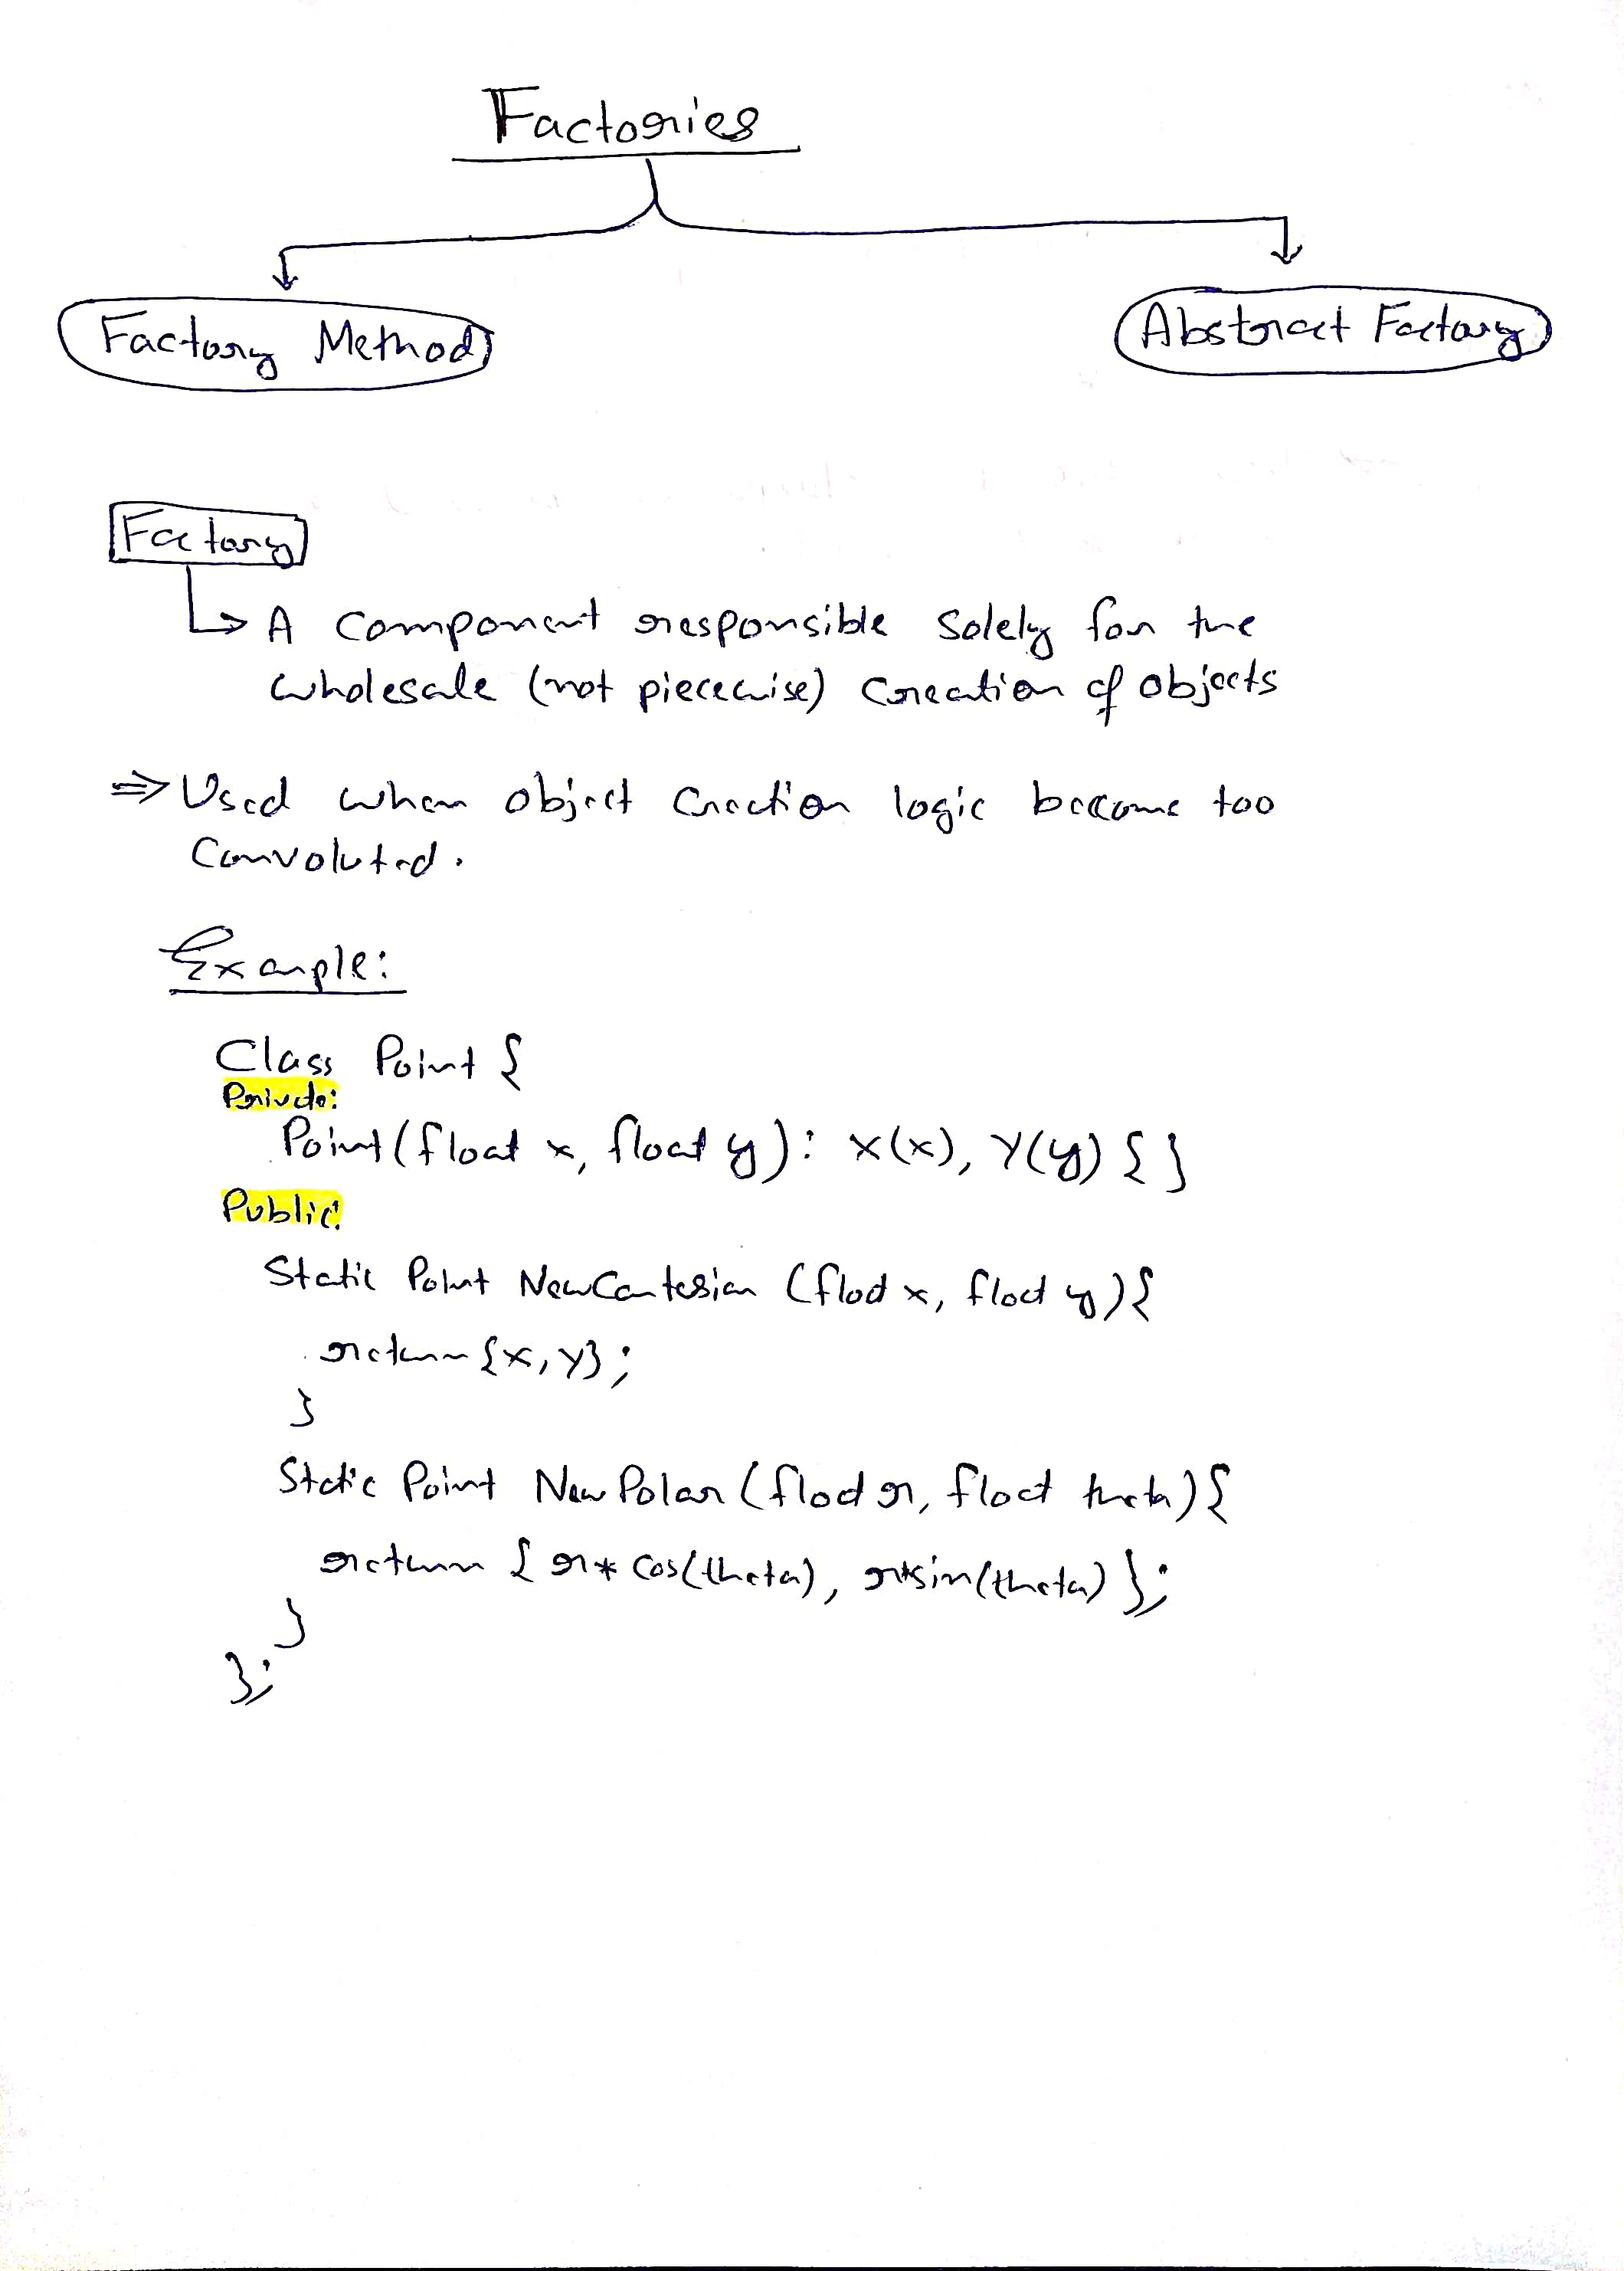 Factories
Factory Method
Abstract Factory
Factory
A component responsible solely for the
wholesale (not piecewise) creation of objects
⇒ Used when object creation logic become too
convoluted.
Example:
Class Point {
Private:
Point(float x, float y): x(x), y(y) { }
Public:
Static Point NewCartesian (float x, float y){
return {x, y};
}
Static Point NewPolar (float r, float theta){
return { r* cos(theta), r*sin(theta) };
}
};